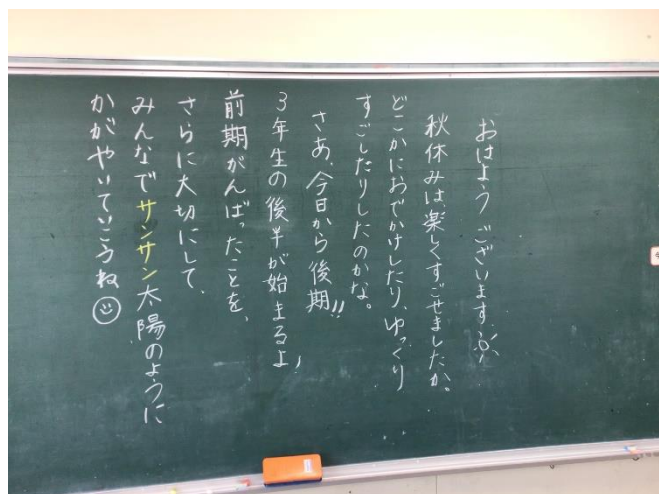 おはようございます
秋休みは、楽しくすごせましたか。
どこかにおでかけしたり、ゆっくり
すごしたりしたのかな。
さあ、今日から後期!!
3年生の後半が始まるよ!
前期がんばったことを、
さらに大切にして、
みんなでサンサン太陽のように
かがやいていこうね